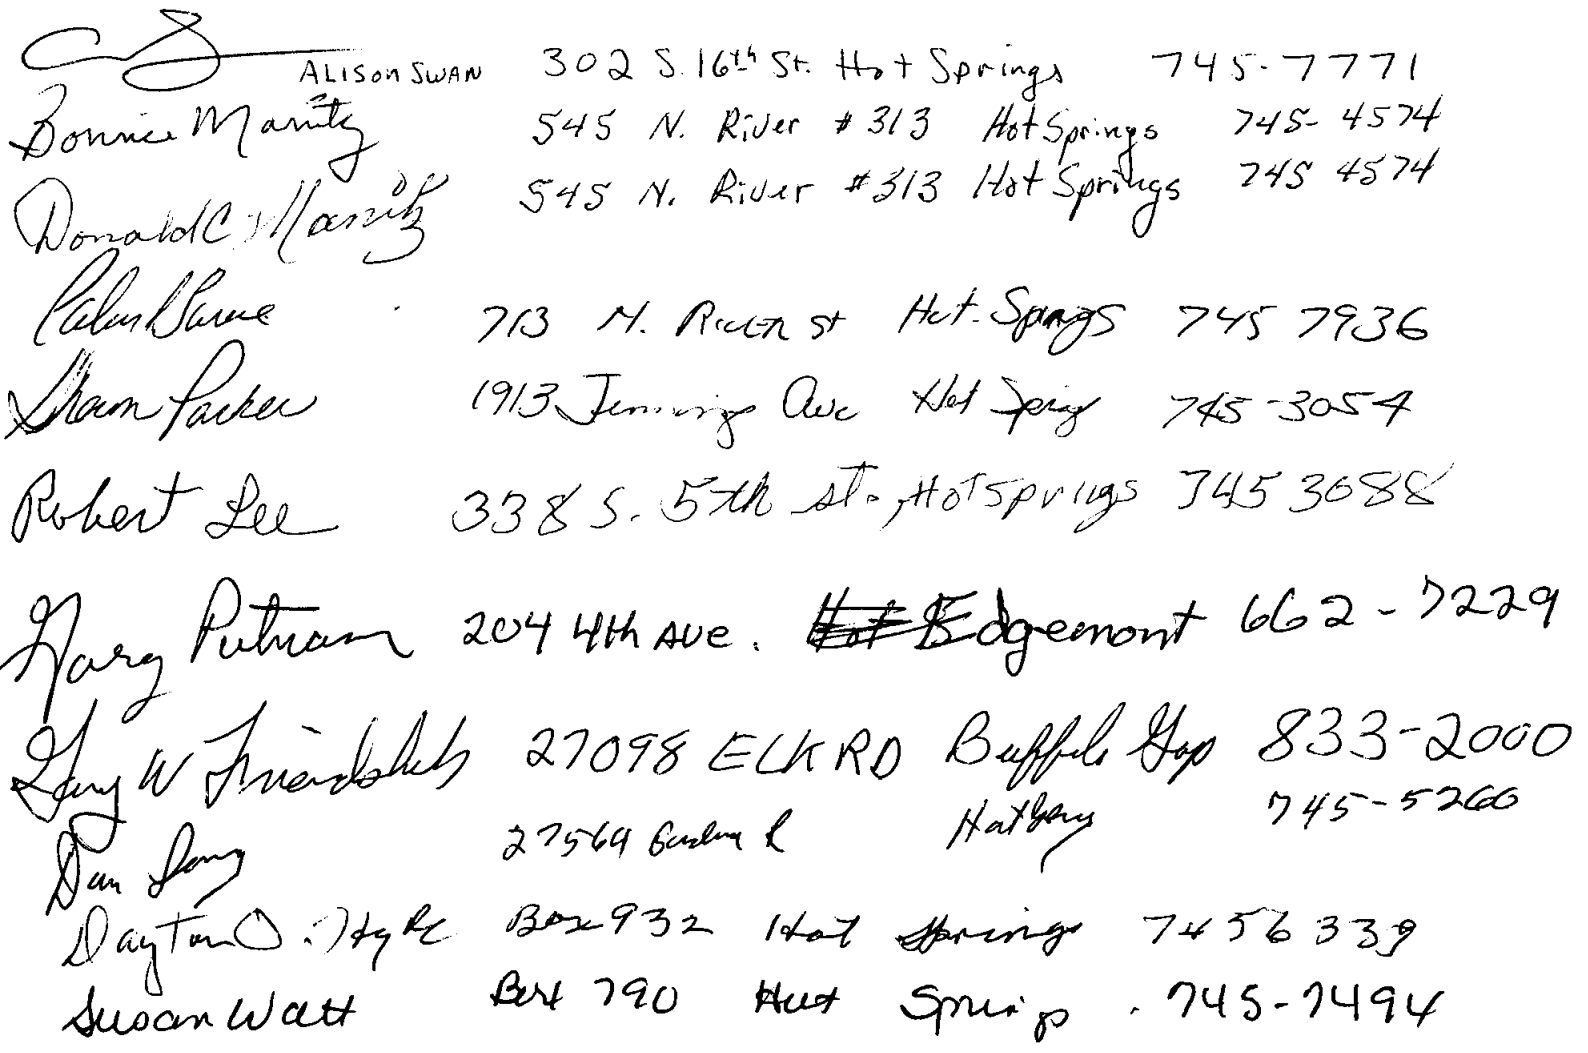 ALISON SWAN 302 S. 16th St. Hot Springs 745-7771
Bonnie Marritz 545 N. River #313 Hot Springs 745-4574
Donald C. Marritz 545 N. River #313 Hot Springs 745 4574
713 N. River St Hot Springs 745 7936
Sharon Parker 1913 Jennings Ave Hot Spring 745-3054
Robert Lee 338 S. 5th st., Hot Springs 745 3088
Putnam 204 4th AVE. Edgemont 662-7229
Gary W 27098 ELK RD Buffalo Gap 833-2000
Dan 27569 745-5260
Dayton O. Hyde Box 932 Hot Springs 745 6339
Susan Watt Box 790 Hot Springs. 745-7494